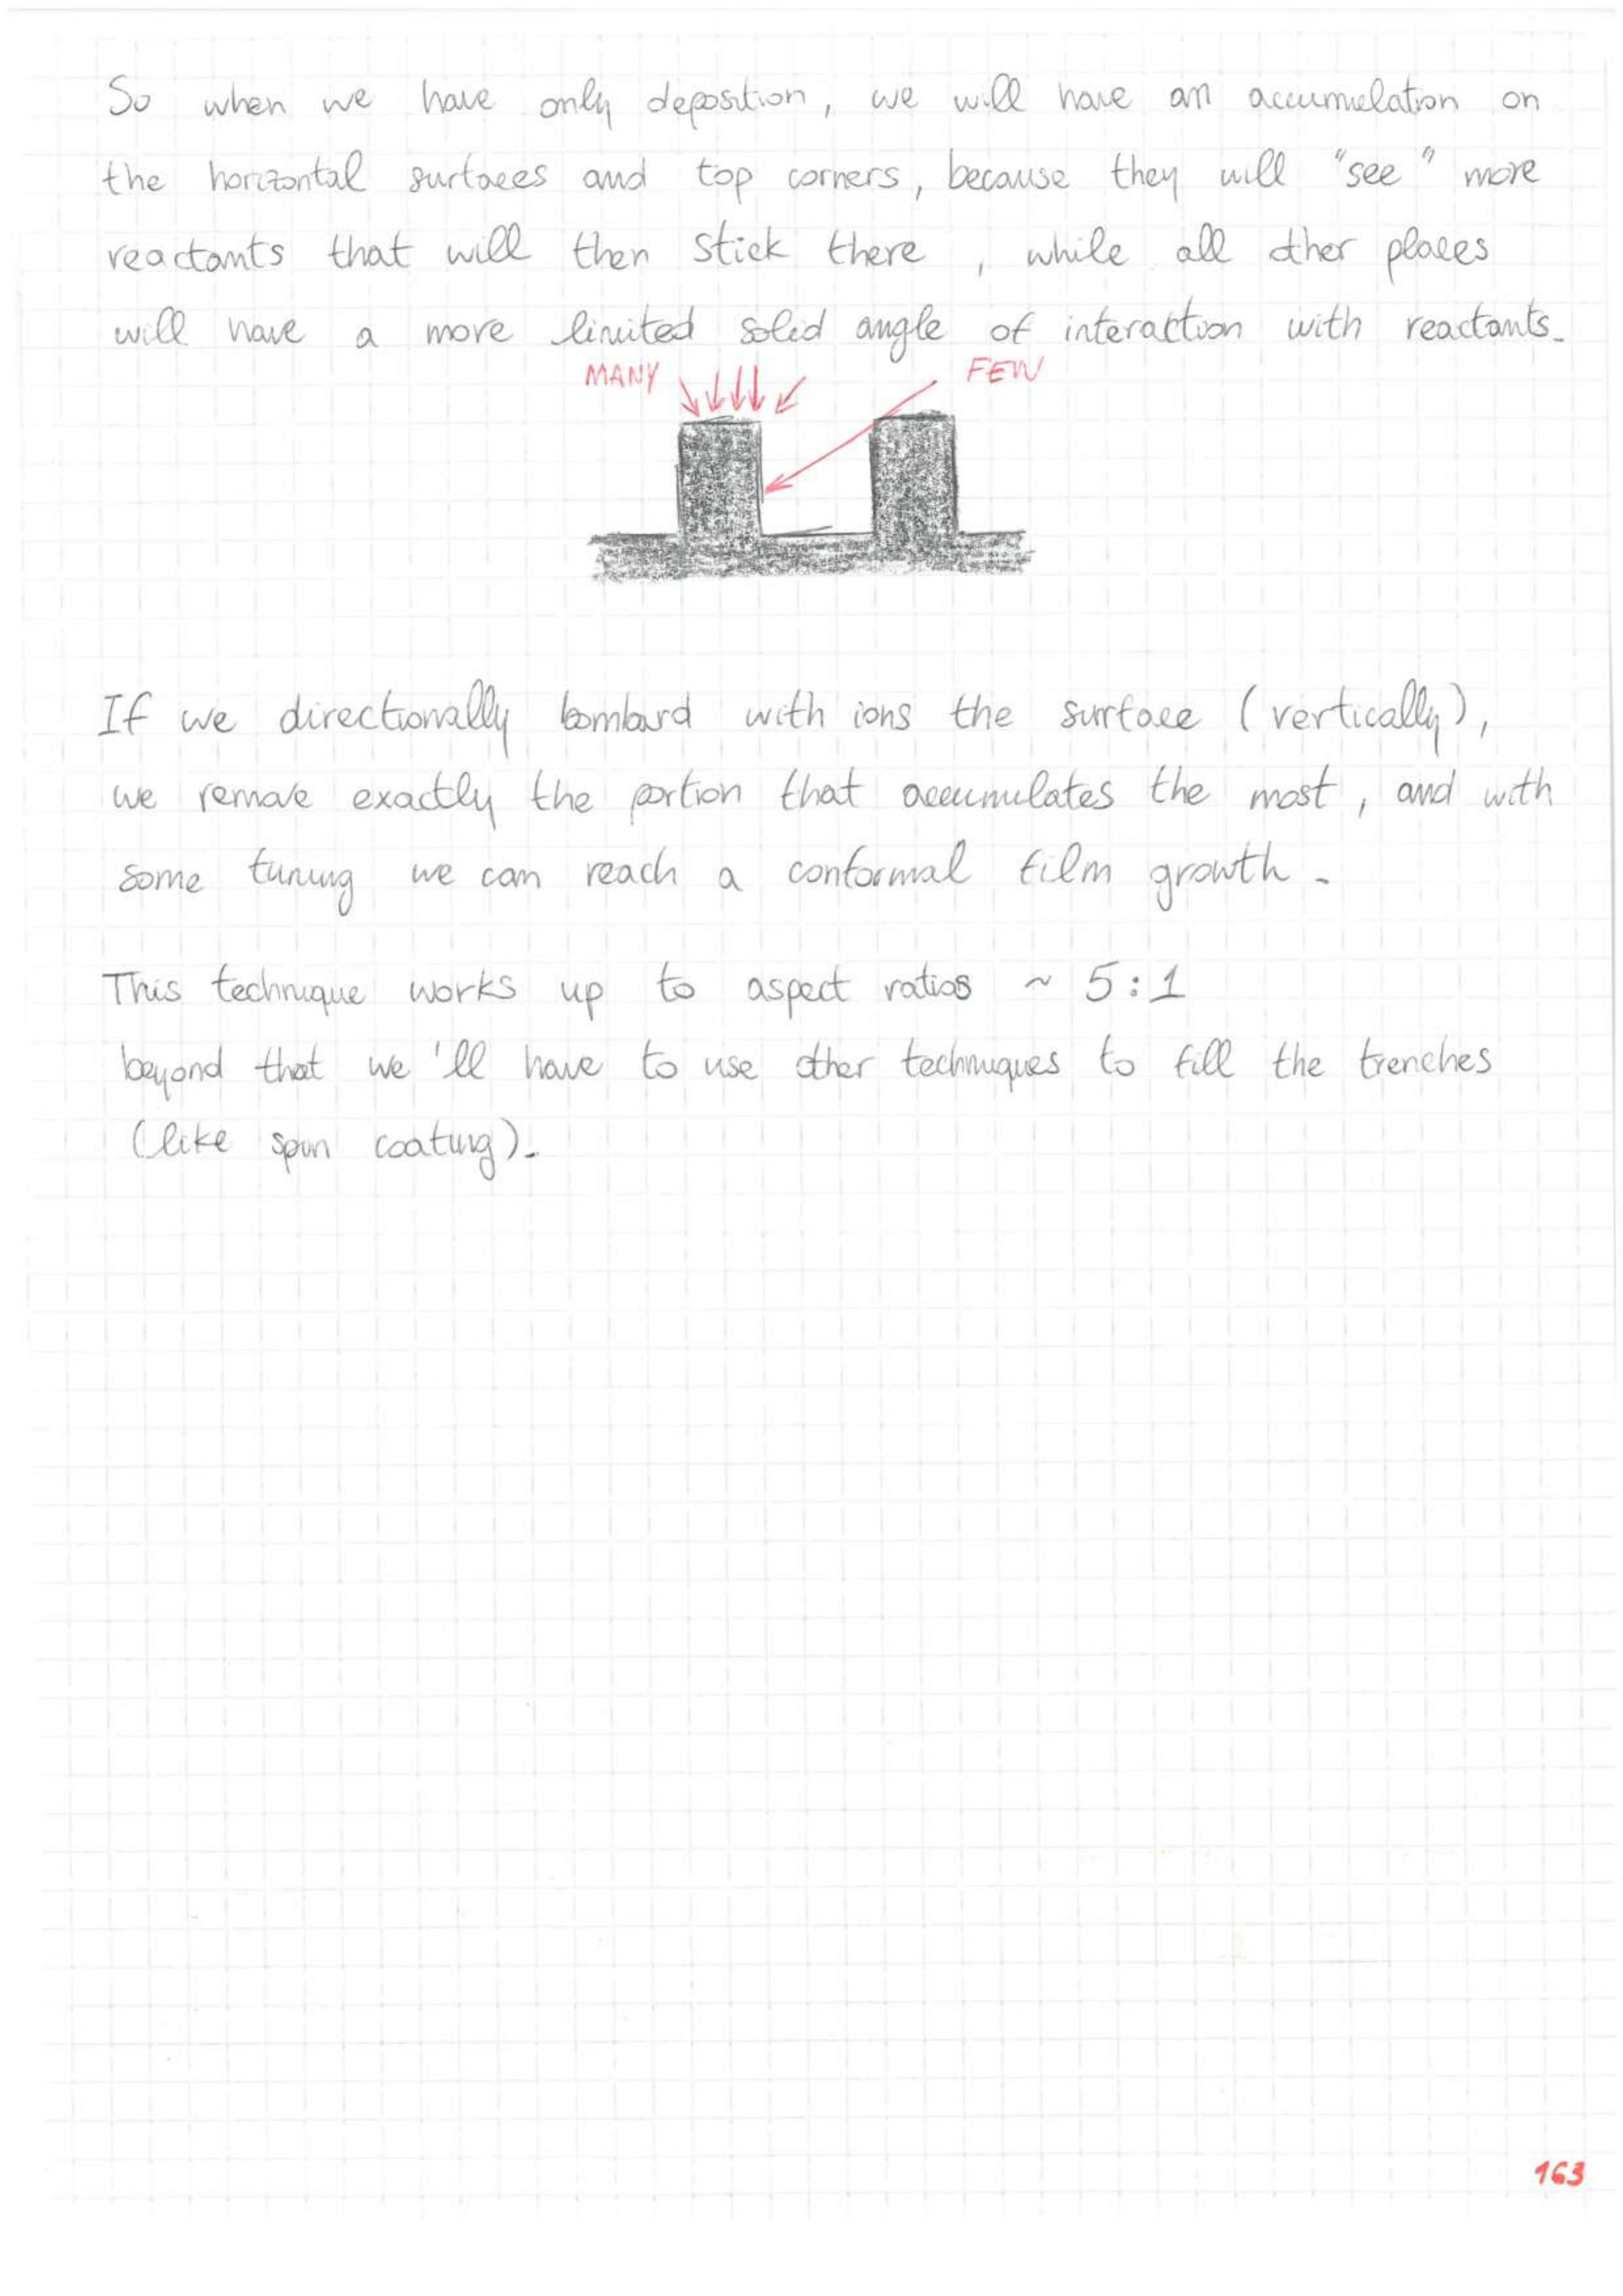 So when we have only deposition, we will have an accumulation on
the horizontal surfaces and top corners, because they will "see" more
reactants that will then stick there, while all other places
will have a more limited solid angle of interaction with reactants.
MANY FEW
If we directionally bombard with ions the surface (vertically),
we remove exactly the portion that accumulates the most, and with
some tuning we can reach a conformal film growth.
This technique works up to aspect ratios ~ 5:1
beyond that we'll have to use other techniques to fill the trenches
(like spin coating).
163